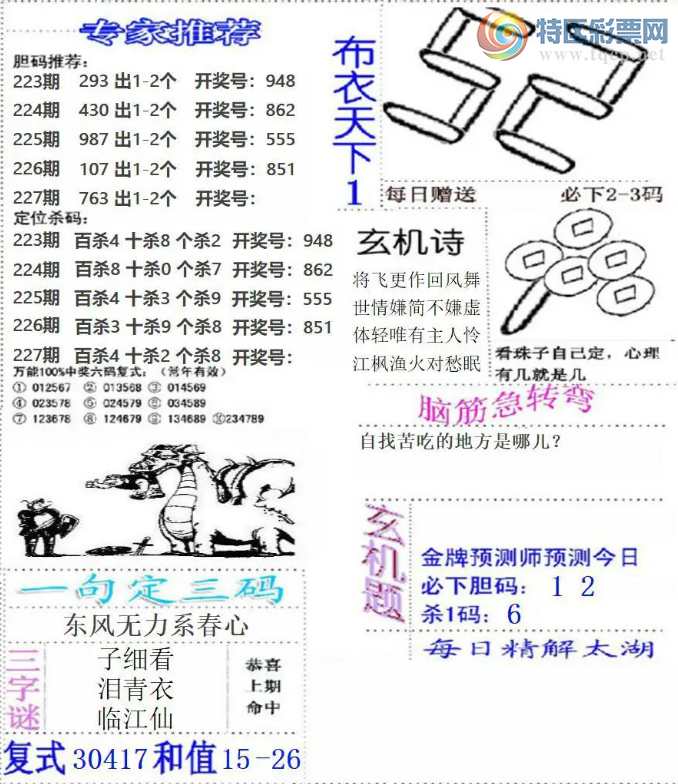 专家推荐
胆码推荐：
223期 293 出1-2个 开奖号：948
224期 430 出1-2个 开奖号：862
225期 987 出1-2个 开奖号：555
226期 107 出1-2个 开奖号：851
227期 763 出1-2个 开奖号：
定位杀码：
223期 百杀4 十杀8 个杀2 开奖号：948
224期 百杀8 十杀0 个杀7 开奖号：862
225期 百杀4 十杀3 个杀9 开奖号：555
226期 百杀3 十杀9 个杀8 开奖号：851
227期 百杀4 十杀2 个杀8 开奖号：
万能100%中奖六码复式：（常年有效）
① 012567 ② 013568 ③ 014569
④ 023578 ⑤ 024579 ⑥ 034589
⑦ 123678 ⑧ 124679 ⑨ 134689 ⑩234789
一句定三码
东风无力系春心
三字谜
子细看
泪青衣
临江仙
恭喜
上期
命中
复式 30417 和值 15-26
特区彩票网
www.tqcp.net
布衣天下1
每日赠送 必下2-3码
玄机诗
将飞更作回风舞
世情嫌简不嫌虚
体轻唯有主人怜
江枫渔火对愁眠
看珠子自己定，心理
有几就是几
脑筋急转弯
自找苦吃的地方是哪儿？
玄机题
金牌预测师预测今日
必下胆码：1 2
杀1码：6
每日精解太湖